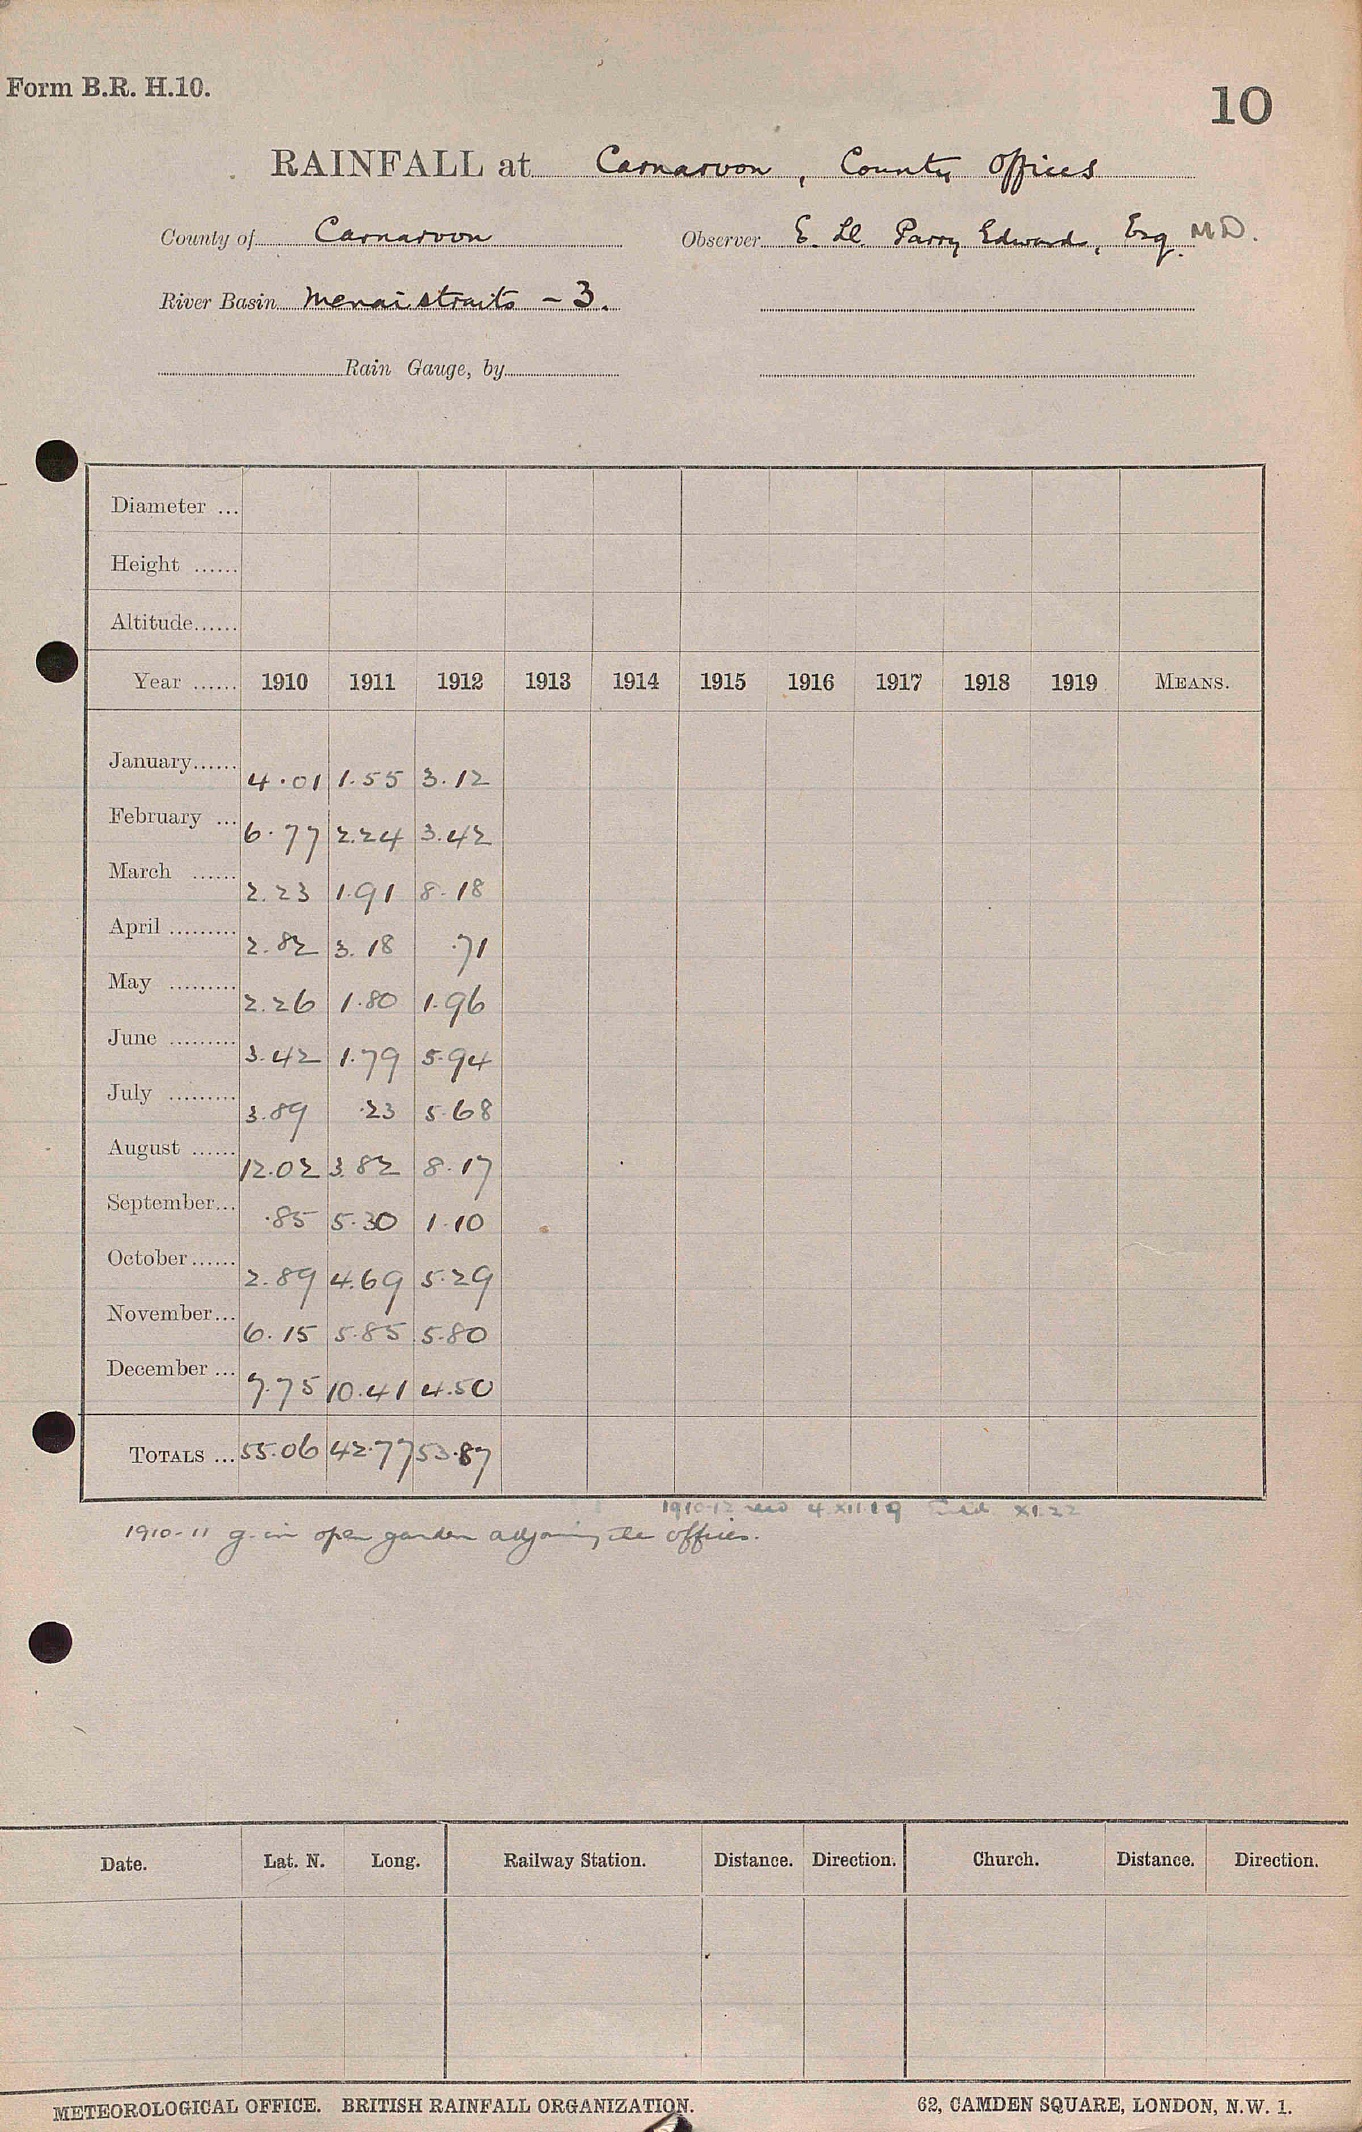 Form B.R. H.10.
10
RAINFALL at Carnarvon, County Offices
County of Carnarvon Observer E. Ll. Parry Edwards, Esq. M D.
River Basin Menai straits - 3.
Rain Gauge, by
Diameter ...
Height ......
Altitude......
Year ...... 1910 1911 1912 1913 1914 1915 1916 1917 1918 1919 MEANS.
January...... 4.01 1.55 3.12
February ... 6.77 2.24 3.42
March ...... 2.23 1.91 8.18
April ......... 2.82 3.18 .71
May ......... 2.26 1.80 1.96
June ......... 3.42 1.79 5.94
July ......... 3.89 .23 5.68
August ...... 12.02 3.82 8.17
September... .85 5.30 1.10
October...... 2.89 4.69 5.29
November... 6.15 5.85 5.80
December ... 7.75 10.41 4.50
TOTALS ... 55.06 42.77 53.87
1910-12 4.XII.19 XI.22
1910-11 g. in open garden adjoining the offices.
Date. Lat. N. Long. Railway Station. Distance. Direction. Church. Distance. Direction.
METEOROLOGICAL OFFICE. BRITISH RAINFALL ORGANIZATION. 62, CAMDEN SQUARE, LONDON, N.W. 1.